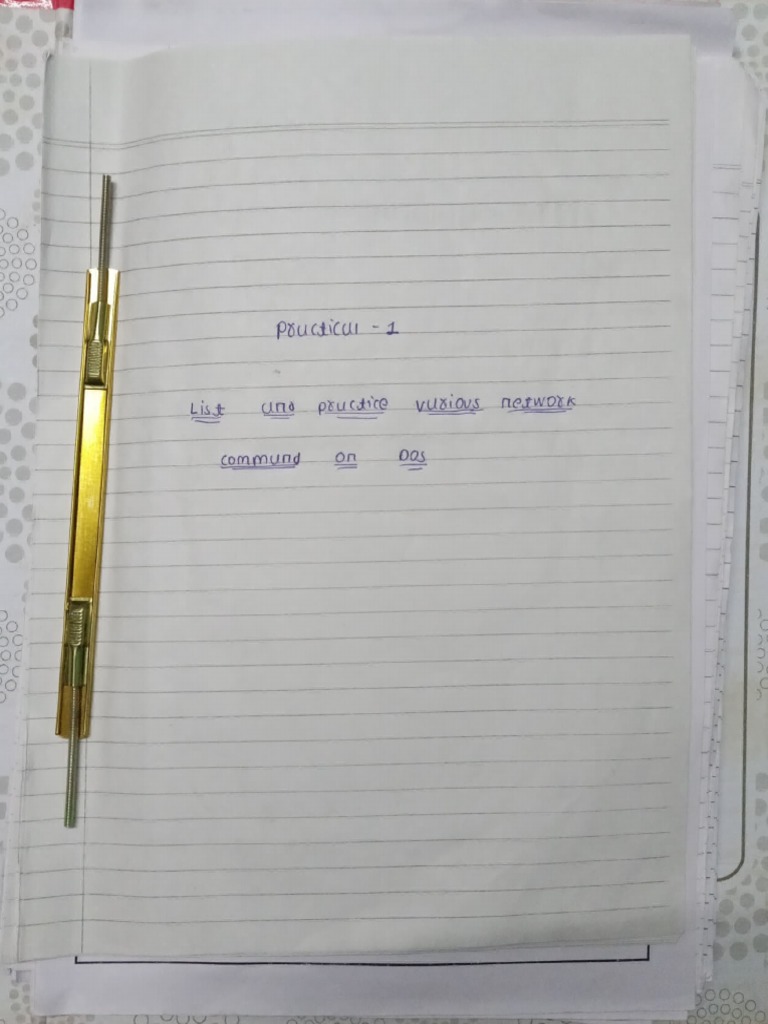 Practical - 1
List and practice various network
command on DOS